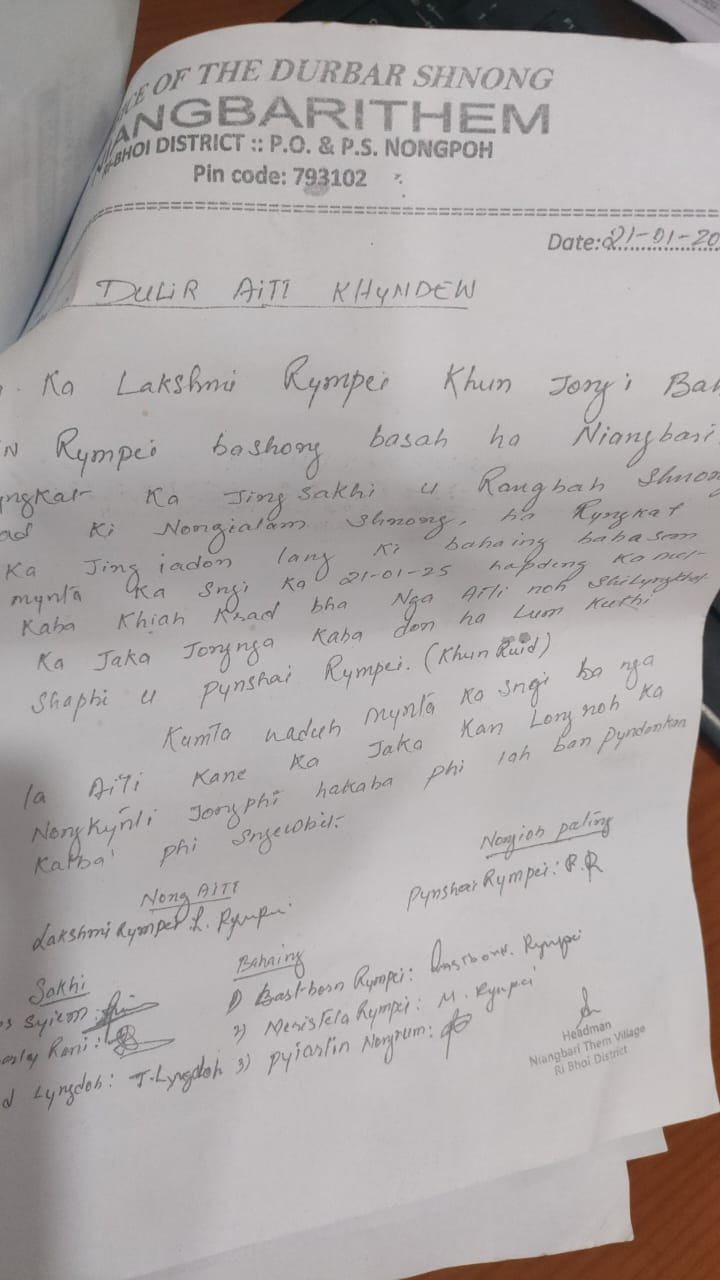 OF THE DURBAR SHNONG
NIANGBARITHEM
RI-BHOI DISTRICT :: P.O. & P.S. NONGPOH
Pin code: 793102
Date: 21-01-20
DULIR AITI KHYNDEW
Ka Lakshmi Rympei Khun Jong i Bah
Rympei bashong basah ha Niangbari
Ka Jingsakhi u Rangbah Shnong
Ki Nongialam Shnong, ha Ryngkat
Ka Jingiadon lang ki bahaing babasan
mynta ka Sngi ka 21-01-25 hapdeng ka
Kaba Khiah Krad bha Nga Aiti noh
Ka Jaka Jongnga kaba don ha Lum Kuthi
Shaphi u Pynshai Rympei. (Khun Ruid)
Kumta naduh mynta ka Sngi ba nga
la Aiti Kane Ka Jaka Kan Long noh ka
Nongkynti Jongphi hakaba phi lah ban pyndonkam
Katba phi Sngewbit.
Nong Aiti
Nongioh pating
Lakshmi Rympei L. Rympei
Pynshai Rympei: P.R
Sakhi
Bahaing
Syiem:
1) Eastborn Rympei: Eastborn. Rympei
Rani:
2) Meristela Rympei: M. Rympei
Lyngdoh: T. Lyngdoh
3) Pyiarlin Nongrum:
Headman
Niangbari Them Village
Ri Bhoi District